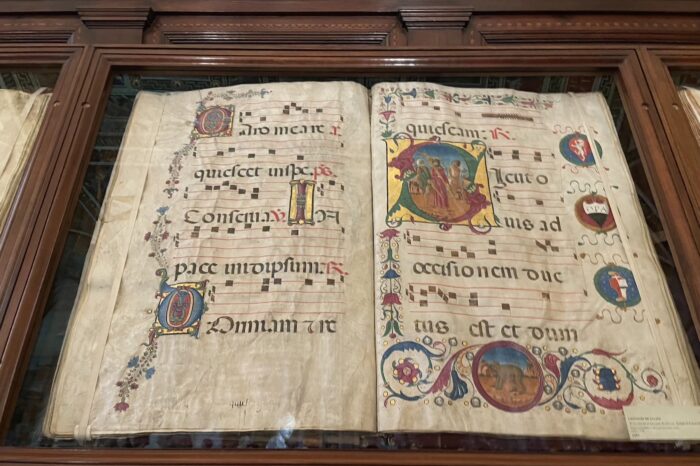 Caro mea re
quiescet in spe. ps.
Conserva V. IN
pace in idipsum R.
Dormiam et re
quiescam: R.
Sicut o
vis ad
occisionem duc
tus est et dum